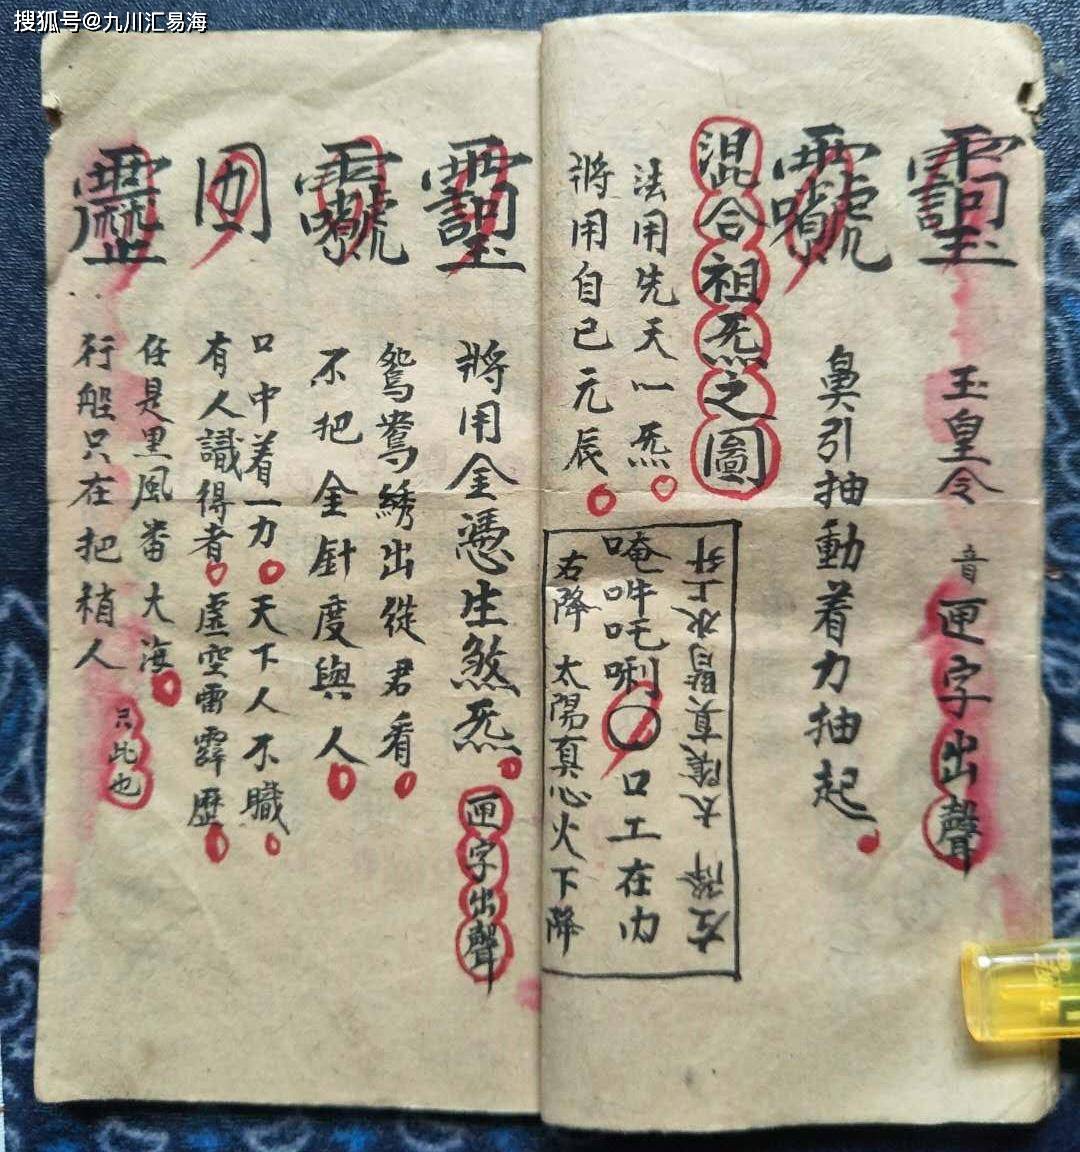 搜狐号@九川汇易海
玉皇令 音匣字出聲
鼻引抽動着力抽起
混合祖炁之圖
法用先天一炁
將用自己元辰
左降 太陰真腎水上升
唵吽吒唎〇口工在内
右降 太陽真心火下降
將用金憑生煞炁 匣字出聲
鴛鴦綉出從君看
不把金針度與人
口中着一力天下人不職
有人識得者虛空雷霹歷
任是黑風畨大海
行船只在把稍人
只此也